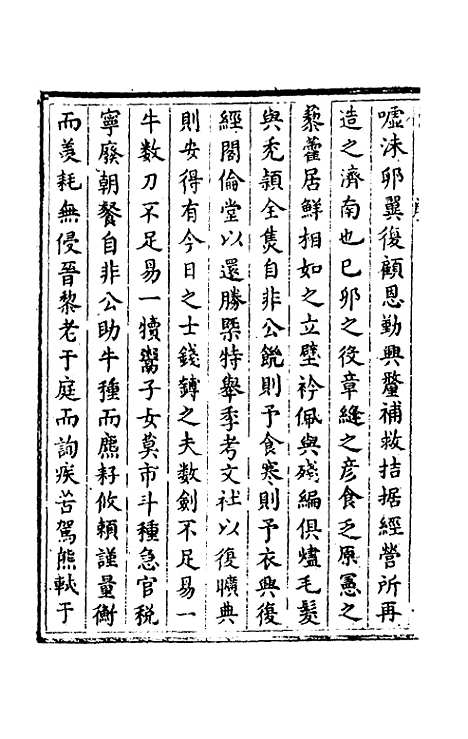 噓沬卵翼復顧恩勤興釐補救拮据經營所再
造之濟南也己卯之役章縫之彦食乏原憲之
藜藿居鮮相如之立壁衿佩與殘編俱燼毛髮
與禿頴全雋自非公餼則予食寒則予衣與復
經閣倫堂以還勝槩特舉季考文社以復曠典
則安得有今日之士錢鎛之夫數劍不足易一
牛數刀不足易一犢鬻子女莫市斗種急官稅
寧廢朝餐自非公助牛種而麃耔攸賴謹量衡
而羨耗無侵晉黎老于庭而詢疾苦駕熊軾于